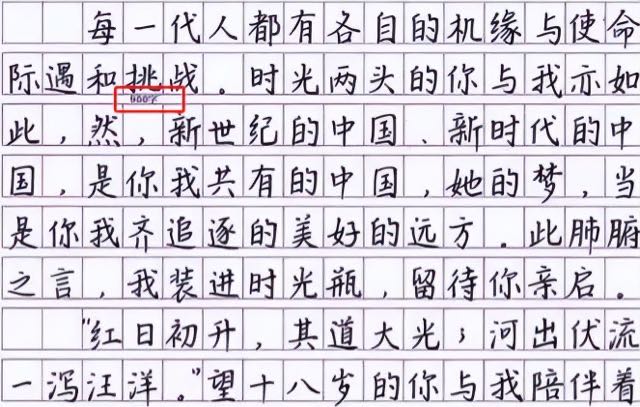 每一代人都有各自的机缘与使命
际遇和挑战。时光两头的你与我亦如
900字
此，然，新世纪的中国、新时代的中
国，是你我共有的中国，她的梦，当
是你我齐追逐的美好的远方。此肺腑
之言，我装进时光瓶，留待你亲启。
“红日初升，其道大光；河出伏流
一泻汪洋。”望十八岁的你与我陪伴着